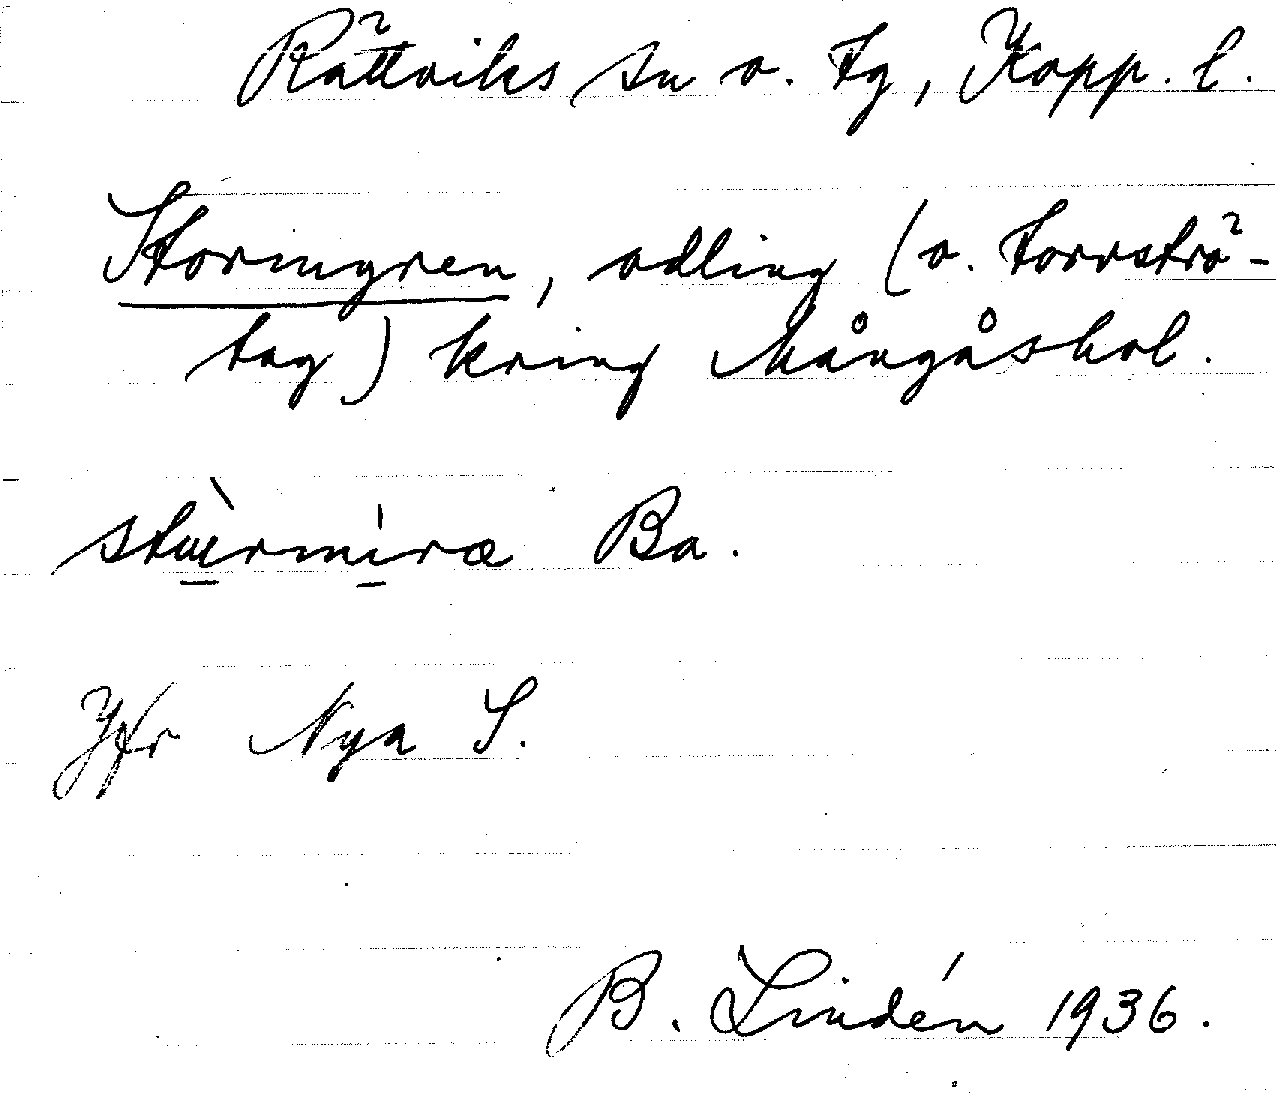 Rättviks sn o. tg, Kopp. l.
Stormyren, odling (o. torrströ-
tag) kring Mångåshol.
stùermiræ Ba.
Jfr Nya S.
B. Lindén 1936.